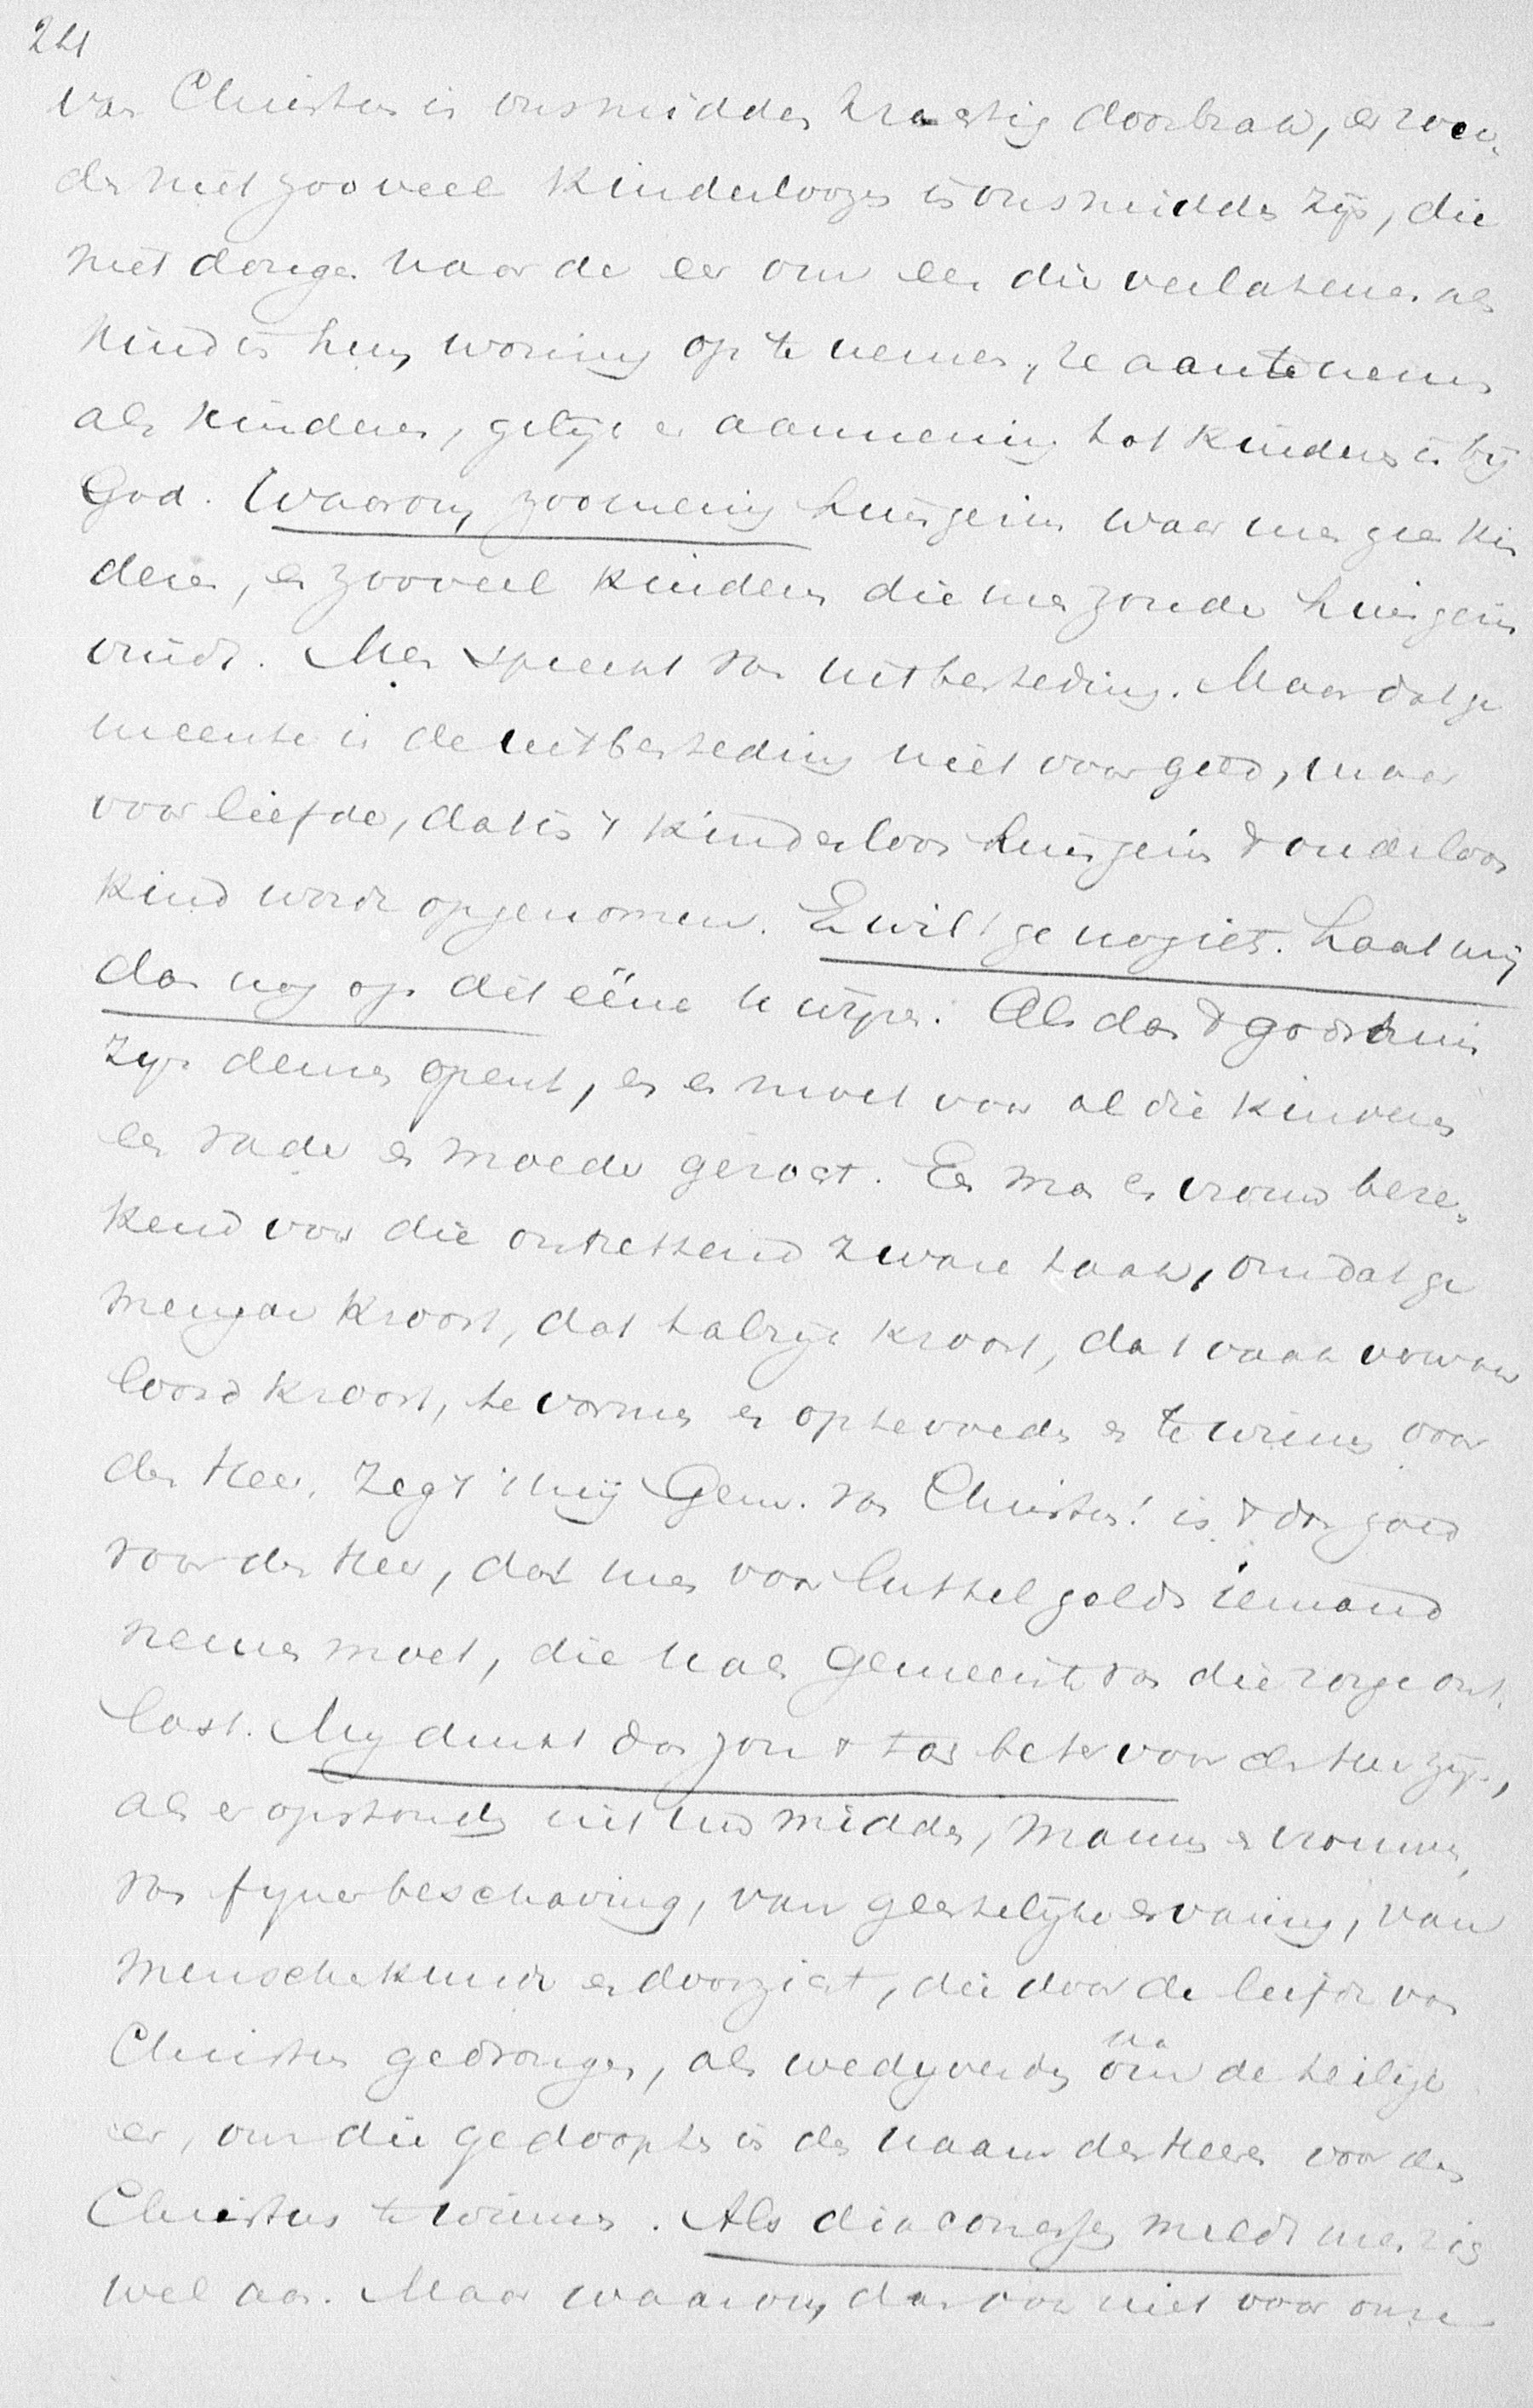 24
van Christus in ons midden krachtig doorbrak, er zou-
den niet zooveel kinderloozen in ons midden zijn, die
niet dongen naar de eer om een dier verlatenen als
kind in hun woning op te nemen, ze aantenemen
als kinderen, gelijk er aanneming tot kinderen is bij
God. Waarom zoo menig huisgezin waar men geen kin
deren, en zooveel kinderen die men zonder huisgezin
vindt. Men spreekt van uitbesteding. Maar dat ge
meente is de uitbesteding niet voor geld, maar
voor liefde, dat in 't kinderloos huisgezin 't ouderloos
kind wordt opgenomen. En wilt ge nog iets. Laat mij
dan nog op dit ééne u wijzen. Als dan 't godshuis
zijn deuren opent, en er moet voor al die kinderen
een vader en moeder gezocht. Een man en vrouw bere-
kend voor die ontzettend zware taak, om dat ge
mengde kroost, dat talrijk kroost, dat vaak verwaar
loosd kroost, te vormen en optevoeden en te winnen voor
den Heer. Zegt mij Gem. van Christus! is 't dan goed
voor den Heer, dat men voor luttel gelds iemand
nemen moet, die haar Gemeente van die zorge ont-
last. My dunkt dan zou 't toch beter voor den Heer zijn,
als er opstonden uit uw midden, mannen en vrouwen,
van fyner beschaving, van geestelijke ervaring, van
menschekennis en doorzicht, die door de liefde van
Christus gedrongen, als wedyverden om na de heilige
eer, om die gedoopten in den naam des Heeren voor den
Christus te winnen. Als diaconessen meldt men zich
wel aan. Maar waarom dan ook niet voor onze